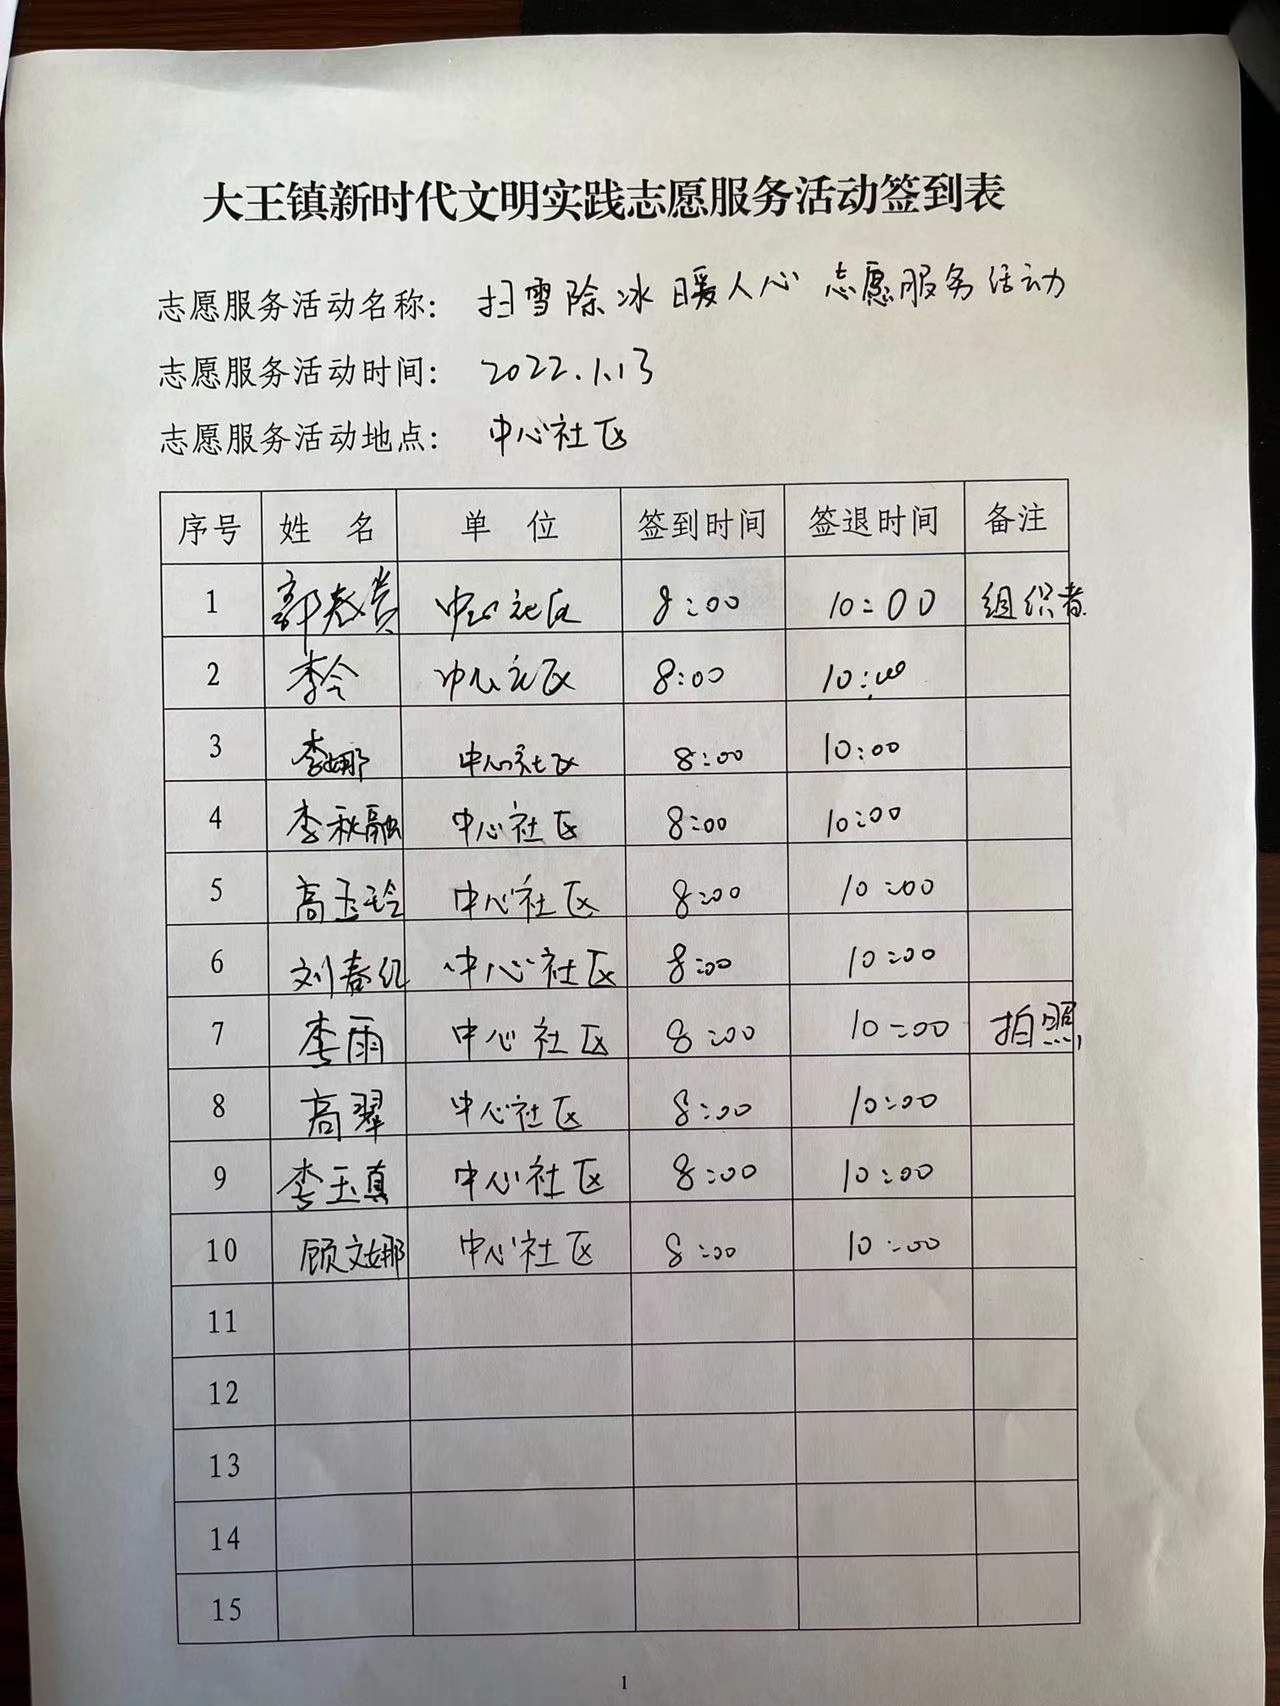 大王镇新时代文明实践志愿服务活动签到表
志愿服务活动名称： 扫雪除冰暖人心 志愿服务活动
志愿服务活动时间： 2022.1.13
志愿服务活动地点： 中心社区
序号 姓 名 单 位 签到时间 签退时间 备注
1 郭 贵 中心社区 8:00 10:00 组织者
2 李令 中心社区 8:00 10:00
3 李娜 中心社区 8:00 10:00
4 李秋融 中心社区 8:00 10:00
5 高玉玲 中心社区 8:00 10:00
6 刘春红 中心社区 8:00 10:00
7 李雨 中心社区 8:00 10:00 拍照
8 高翠 中心社区 8:00 10:00
9 李玉真 中心社区 8:00 10:00
10 顾文娜 中心社区 8:00 10:00
11
12
13
14
15
1